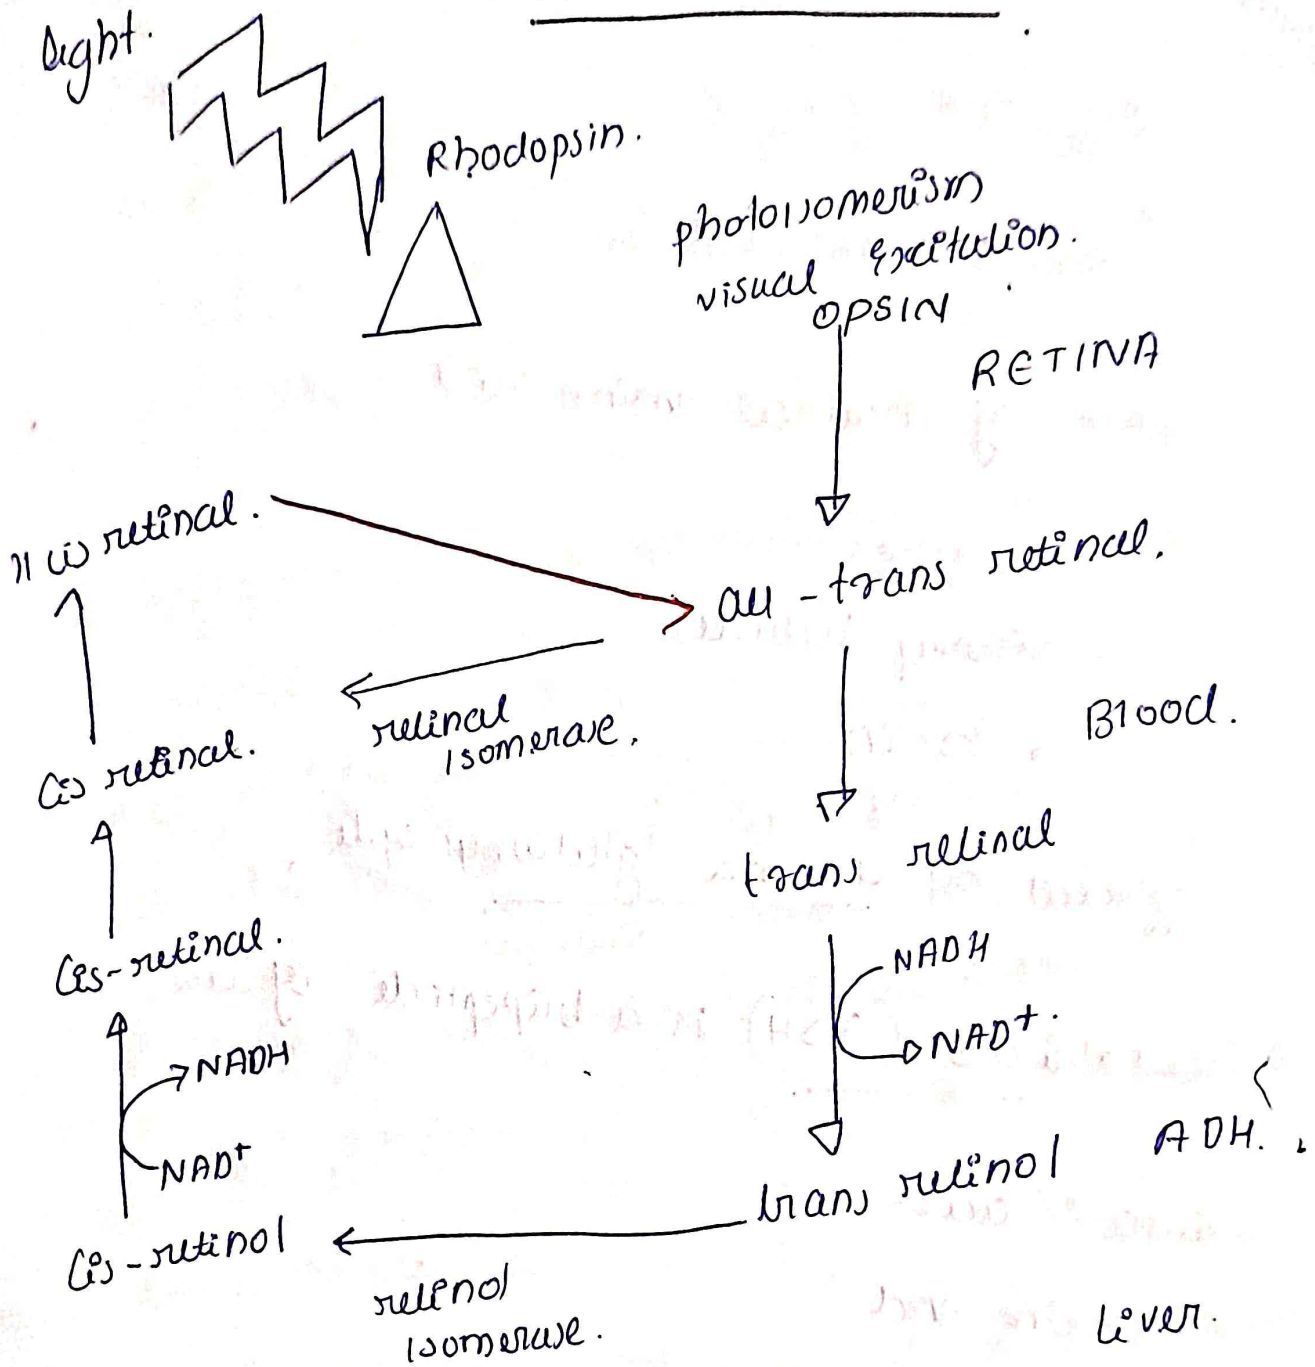 Light.
Rhodopsin.
photoisomerism
visual excitation.
OPSIN
RETINA
11 cis retinal.
all - trans retinal.
retinal
isomerase.
Blood.
Cis retinal.
trans retinal
Cis-retinal.
NADH
NAD+.
NADH
NAD+
ADH.
trans retinol
Cis-retinol
retinol
isomerase.
Liver.